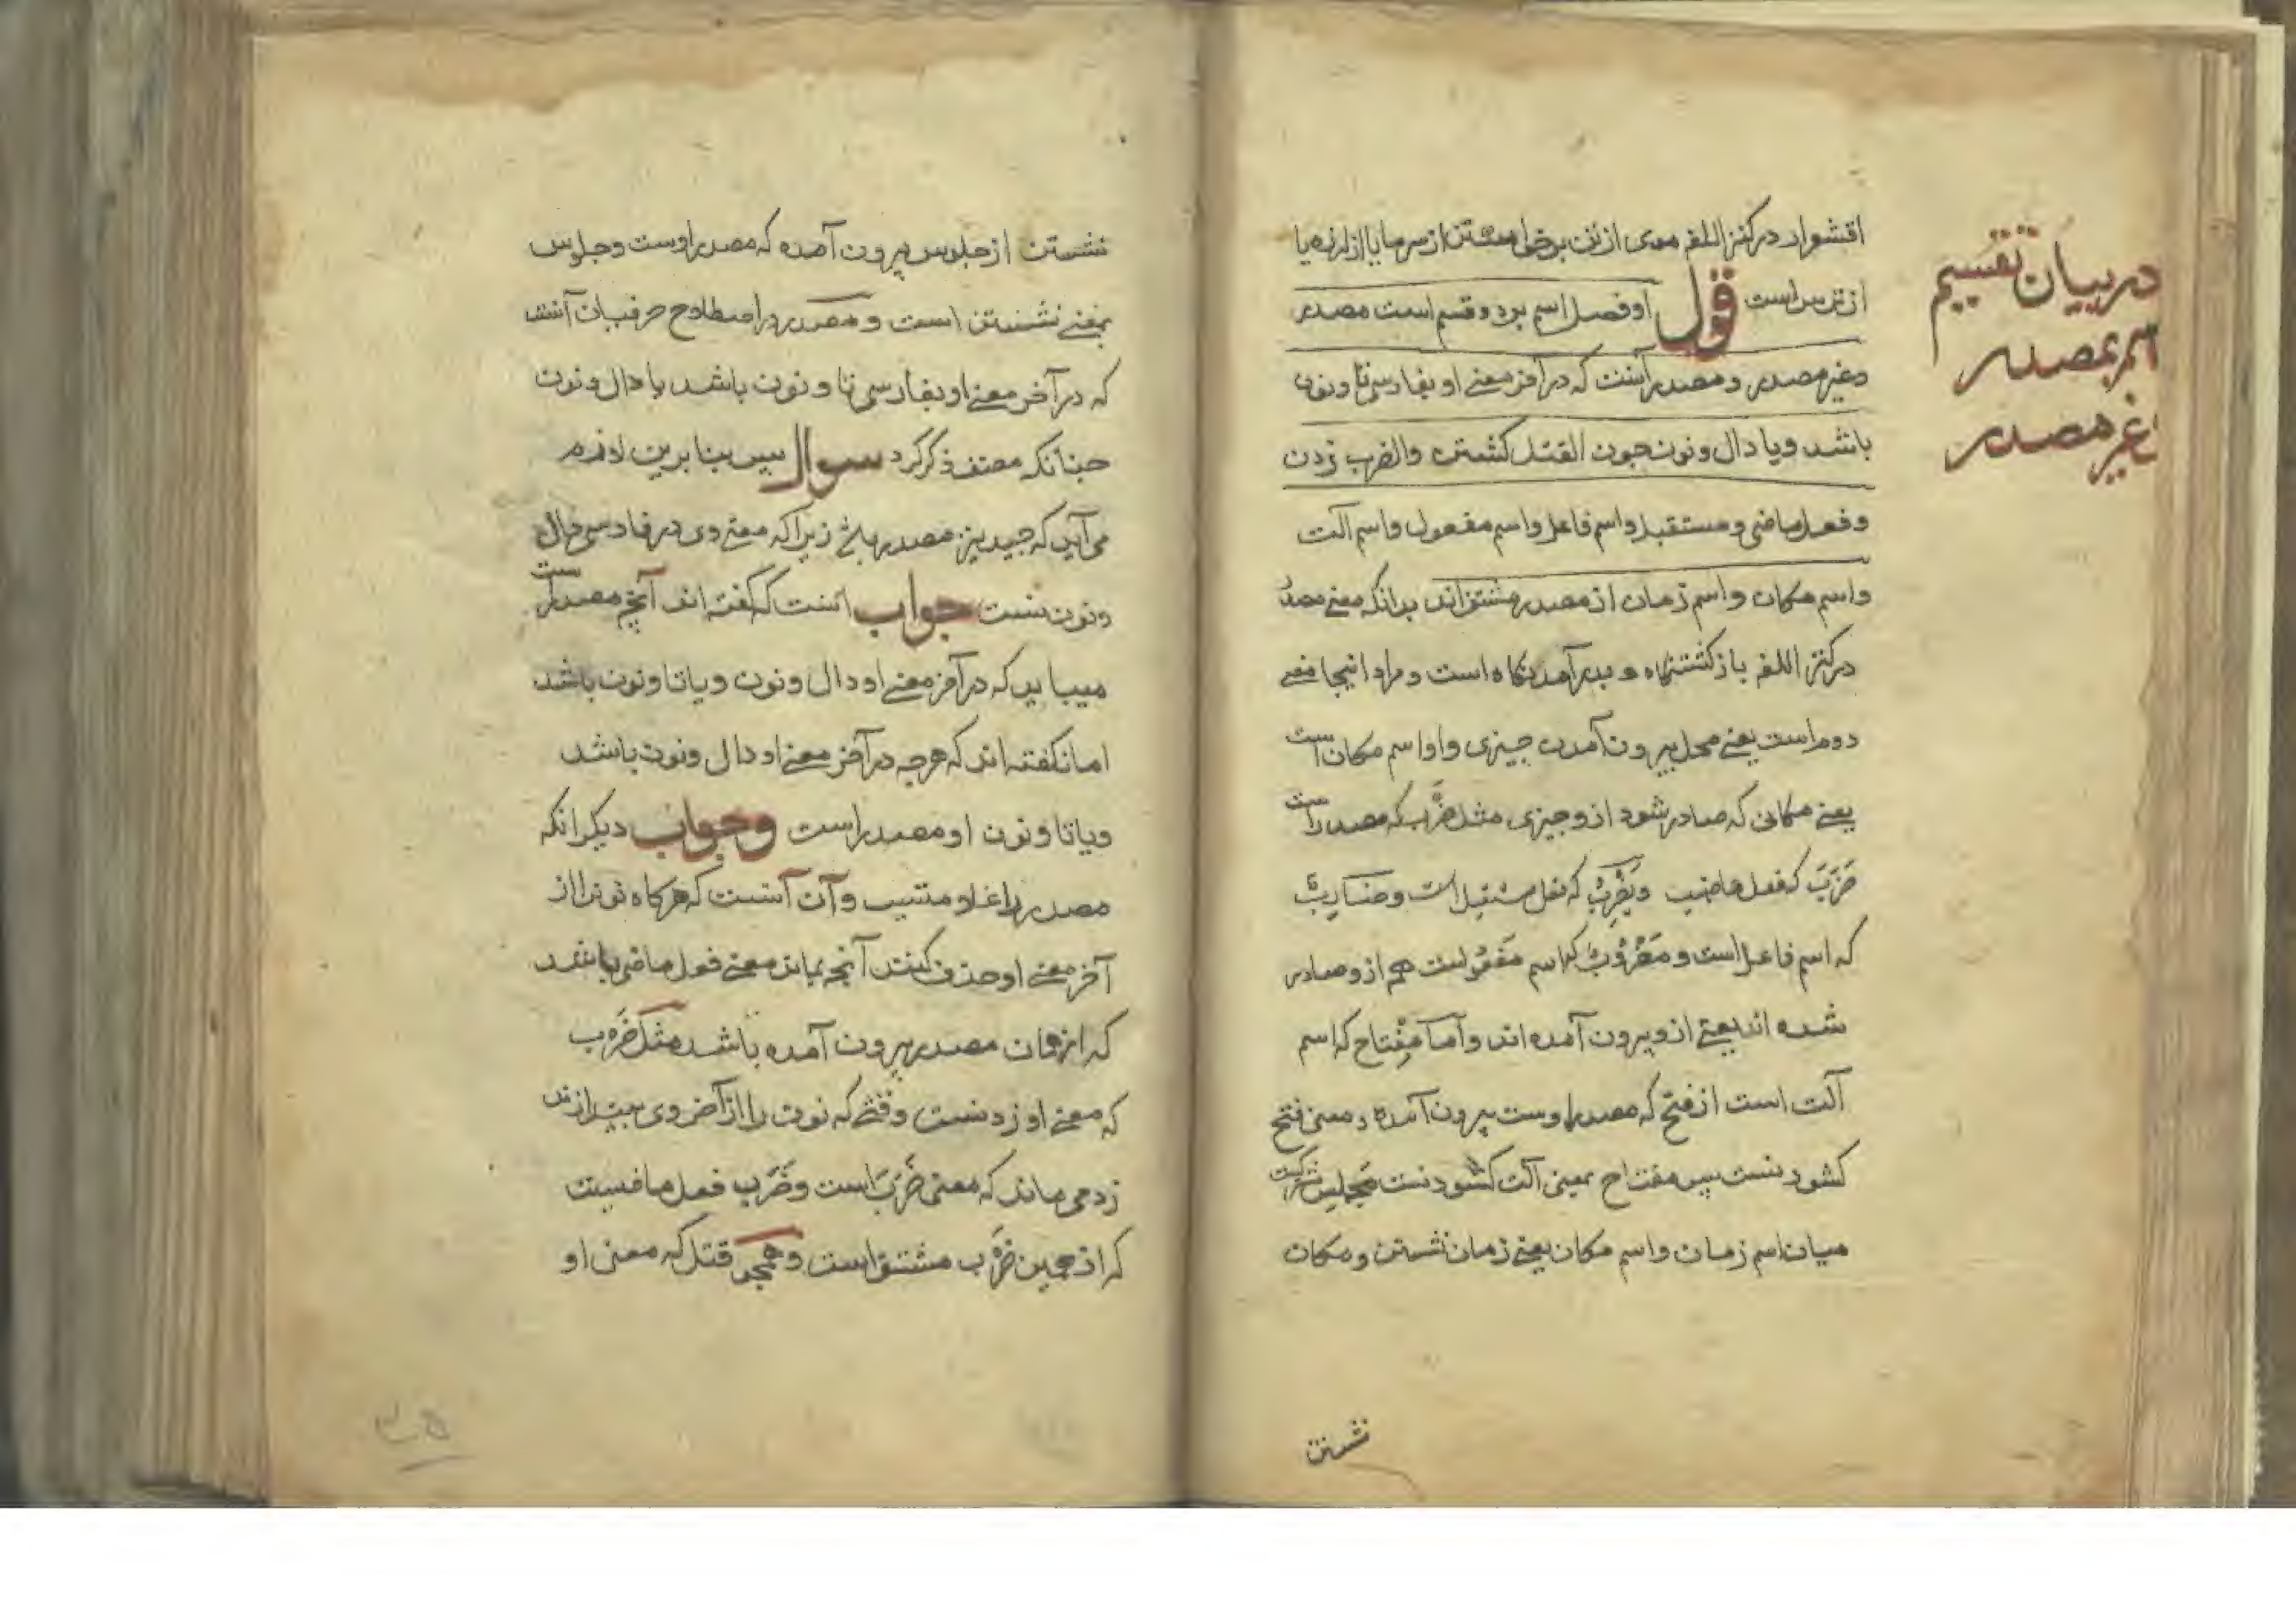 در بیان تقسیم
اسم بمصدر
غیر مصدر
اقشوار در کنز اللغه موی از تن برخاستن از سرما یا از لرزه یا
از ترس است قول او فصل اسم بر دو قسم است مصدر
و غیر مصدر و مصدر آنست که در آخر معنے او بفارسی تا و نون
باشد و یا دال و نون چون القتل کشتن والضرب زدن
و فعل ماضی و مستقبل و اسم فاعل و اسم مفعول و اسم آلت
و اسم مکان و اسم زمان از مصدر مشتق اند بدانکه معنے مصدر
در کنز اللغه باز کشتنکاه و بدر آمدنکاه است و مراد اینجا معنے
دوم است یعنے محل بیرون آمدن چیزی و او اسم مکان است
یعنے مکانی که صادر شود از و چیزی مثل ضَرْب که مصدر است
ضَرَبَ که فعل ماضیست و یَضْرِبُ که فعل مستقبل است و ضاربٌ
که اسم فاعل است و مَضْرُوبٌ که اسم مفعول است هم از و صادر
شده اند یعنے از و بیرون آمده اند و اما مِفْتاح که اسم
آلت است از فتح که مصدر اوست بیرون آمده و معنی فتح
کشودنست پس مفتاح بمعنی آلت کشودنست مجلس مشترکست
میان اسم زمان و اسم مکان یعنے زمان نشستن و مکان
نشستن
نشستن از جلوس بیرون آمده که مصدر اوست و جلوس
بمعنے نشستن است و مصدر در اصطلاح صرفیان آنست
که در آخر معنے او بفارسی تا و نون باشد یا دال و نون
چنانکه مصنف ذکر کرد سوال پس بنا برین لازم
می آید که جید نیز مصدر باشد زیرا که معنے وی در فارسی دال
و نونست جواب آنست که گفته اند آنچه مصدر است
میباید که در آخر معنے او دال و نون و یا تا و نون باشد
اما نکفته اند که هرچه در آخر معنے او دال و نون باشد
و یا تا و نون او مصدر است و جواب دیکر انکه
مصدر را علامتیست و آن آنست که هرکاه نونرا از
آخر معنے او حذف کنند آنچه بماند معنے فعل ماضی باشد
که از همان مصدر بیرون آمده باشد مثل ضَرْب
که معنے او زدنست وقتے که نون را از آخر وی بیندازند
زد می ماند که معنی ضَرَبَ است و ضَرَبَ فعل ماضیست
که از همین ضَرْب مشتق است و همچو قتل که معنی او
۳۵